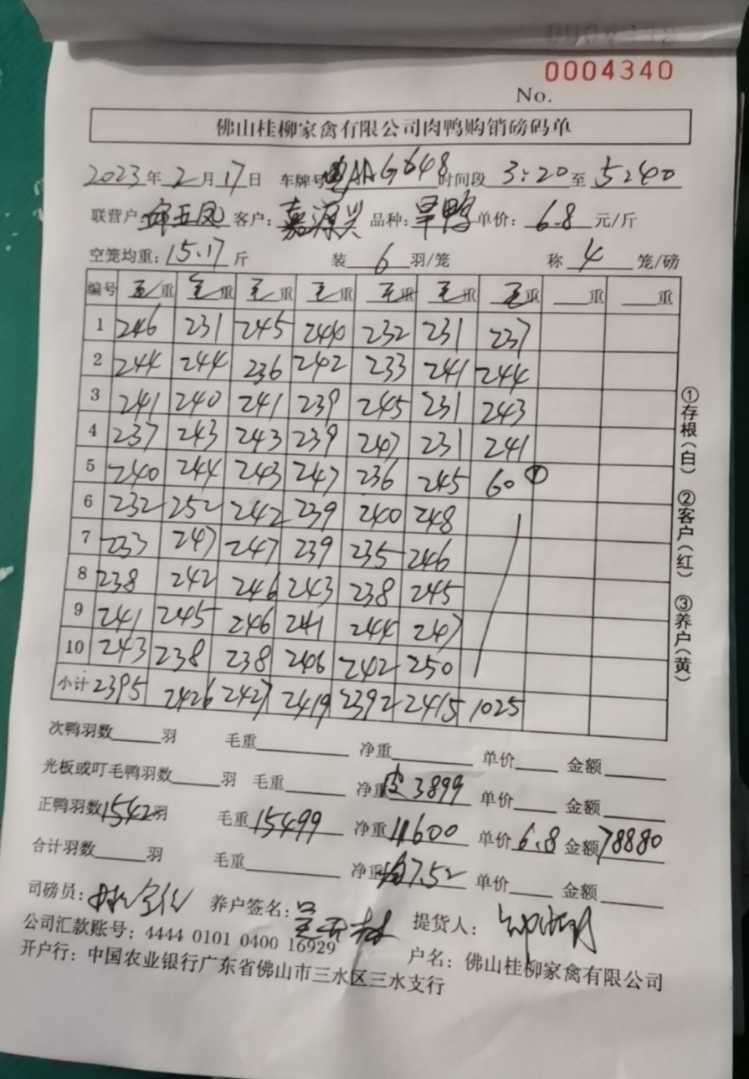 0004340
No.
佛山桂柳家禽有限公司肉鸭购销磅码单
2023年2月17日 车牌号 AAG648 时间段 3:20至5:40
联营户 五凤 客户:嘉源兴 品种:旱鸭 单价:6.8元/斤
空笼均重:15.17斤 装6羽/笼 称4笼/磅
编号 毛重 毛重 毛重 毛重 毛重 毛重 毛重 重 重
1 246 231 245 240 232 231 237
2 244 244 236 242 233 241 244
3 241 240 241 239 245 231 243
4 237 243 243 239 247 231 241
5 240 244 243 247 236 245 60 ①
6 232 252 242 239 240 248
7 233 247 247 239 235 246
8 238 242 246 243 238 245
9 241 245 246 241 244 247
10 243 238 238 246 242 250
小计 2395 2426 2427 2419 2392 2415 1025
①存根(白) ②客户(红) ③养户(黄)
次鸭羽数 羽 毛重 净重 单价 金额
光板或叮毛鸭羽数 羽 毛重 净重 皮3899 单价 金额
正鸭羽数1542羽 毛重15499 净重11600 单价6.8 金额78880
合计羽数 羽 毛重 净重 均7.52 单价 金额
司磅员: 养户签名: 提货人:
公司汇款账号:4444 0101 0400 16929 户名:佛山桂柳家禽有限公司
开户行:中国农业银行广东省佛山市三水区三水支行